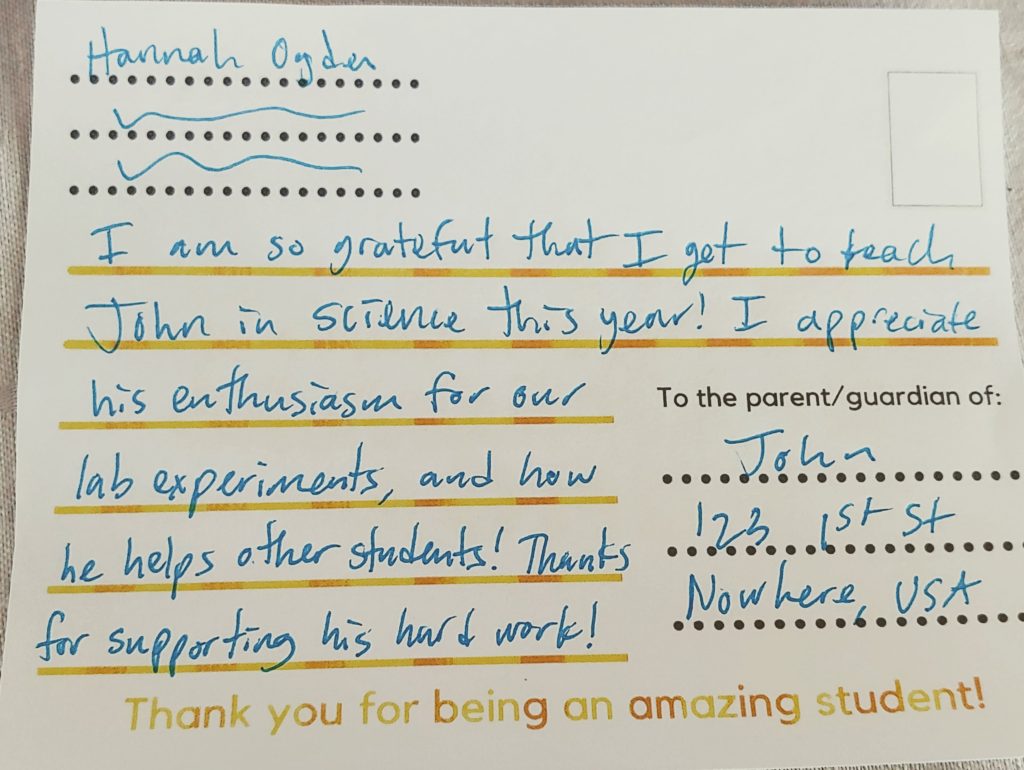 Hannah Ogden
I am so grateful that I get to teach
John in science this year! I appreciate
his enthusiasm for our
lab experiments, and how
he helps other students! Thanks
for supporting his hard work!
To the parent/guardian of:
John
123 1st St
Nowhere, USA
Thank you for being an amazing student!